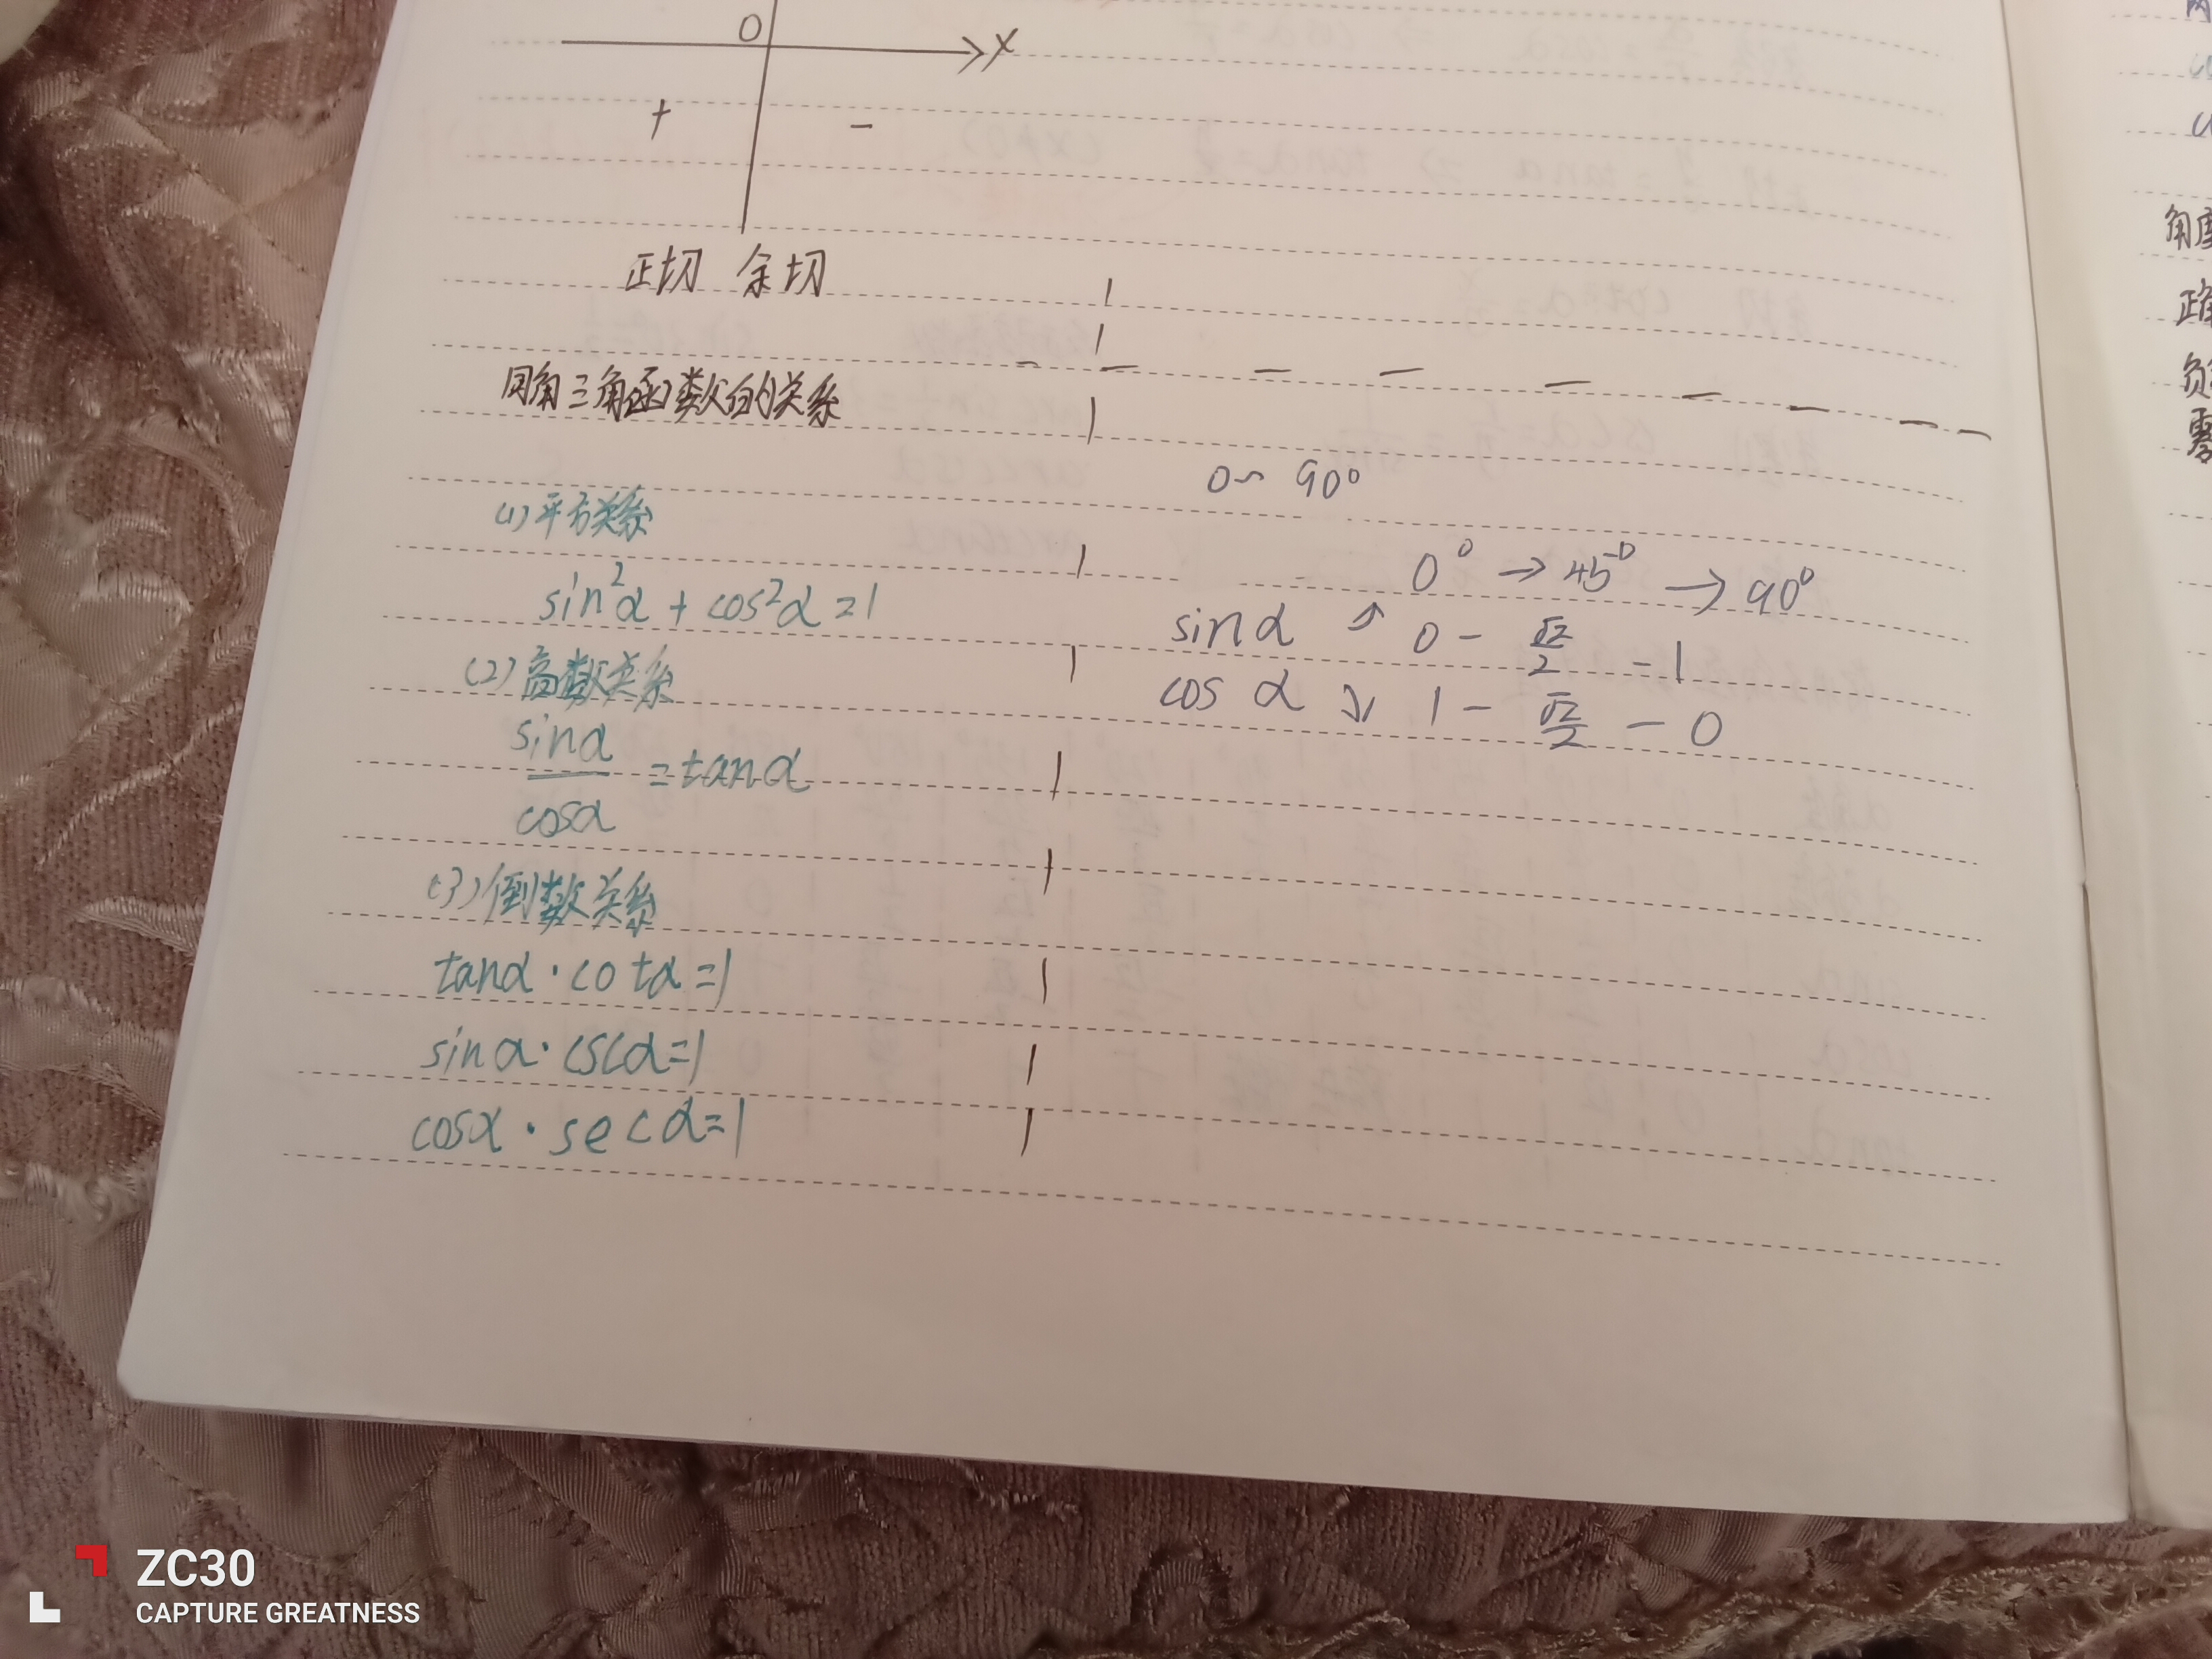 0 x
+ -
正切 余切
同角三角函数的关系
(1)平方关系
sin²α + cos²α=1
(2)商数关系
sinα
—— =tanα
cosα
(3)倒数关系
tanα·cotα=1
sinα·cscα=1
cosα·secα=1
0~ 90°
0° → 45° → 90°
sinα ↗ 0 - √2/2 - 1
cos α ↘ 1 - √2/2 - 0
角度
零
ZC30
CAPTURE GREATNESS